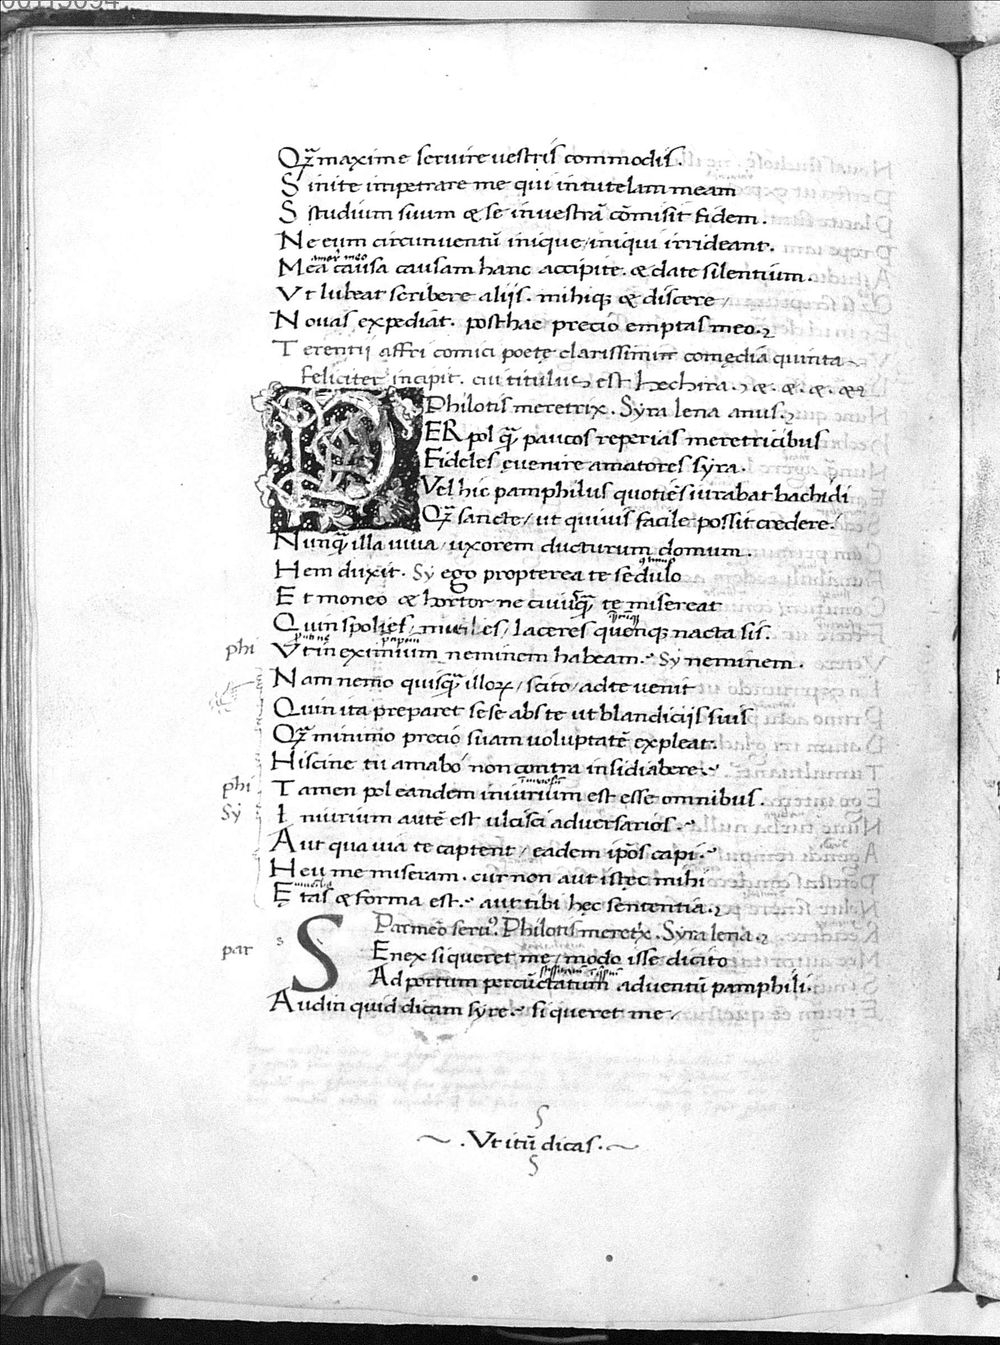 Qꝫ̄ maxime servire vestris commodis.
Sinite impetrare me qui in tutelam meam
Studium suum & se in vestrā cōmisit fidem.
Ne eum circunuentū inique / iniqui irrideant.
amor meo
Mea causa causam hanc accipite. & date silentium.
Vt lubeat scribere alijs. mihiqꝫ & discere /
Nouas expediat. posthac precio emptas meo.
Terentij affri comici poetę clarissimi comędia quinta
feliciter incipit. cui titulus est hechira. & . & . & . &
Philotis meretrix. Syra lena anus.
PER pol q̄ꝫ paucos reperias meretricibus
Fideles ęuenire amatores syra.
Vel hic pamphilus quotiēs iurabat bachidi
Qꝫ̄ sancte / ut quiuis facile possit credere /
Nunq̄ꝫ illa uiua / uxorem ducturum domum.
Hem duxit. Sy ego propterea te sedulo
Et moneo & hortor ne cuiusq̄ꝫ te misereat
Quin spolies / mutiles / laceres quenqꝫ nacta sis.
phi Vtin eximium neminem habeam. Sy neminem.
Nam nemo quisq̄ꝫ illoꝝ / scito / ad te uenit
Quin ita preparet sese abs te ut blandicijs suis
Qꝫ̄ minimo precio suam uoluptatē expleat.
Hiscine tu amabo non contra insidiabere.
phi Tamen pol eandem iniurium est esse omnibus.
Sy Iniurium autē est ulcisci adversarios.
Aut qua uia te captent / eadem ip̄os capi.
Heu me miseram. cur non aut istęc mihi
Ętas & forma est. aut tibi hec sententia.
Parmeō seruꝰ. Philotis meretx. Syra lena.
par Senex si queret me / modo isse dicito
Ad portum percūctatum aduentū pamphili.
Audin quid dicam syre. si queret me /
. Vt itū dicas.